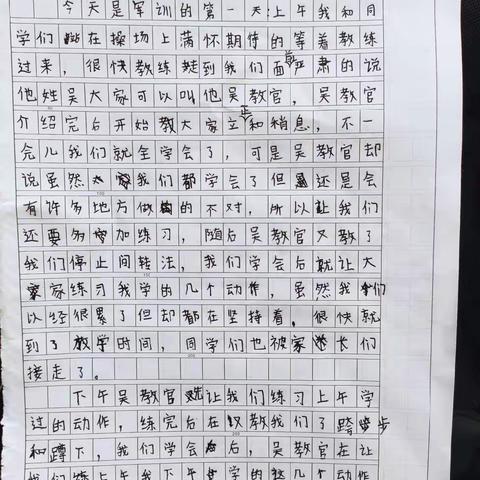 今天是军训的第一天：上午我和同
学们在操场上满怀期待的等着教练
过来，很快教练走到我们面前严肃的说
他姓吴大家可以叫他吴教官，吴教官
介绍完后开始教大家立正和稍息，不一
会儿我们就全学会了，可是吴教官却
说虽然我们都学会了但还是会
有许多地方做的不对，所以让我们
还要多加练习，随后吴教官又教了
我们停止间转法，我们学会后就让大
家练习我学的几个动作，虽然我们
以经很累了但却都在坚持着，很快就
到了放学时间，同学们也被家长们
接走了。
下午吴教官让我们练习上午学
过的动作，练完后在以教我们了跨步
和蹲下，我们学会后，吴教官在让
我们练上午我下午学的几个动作